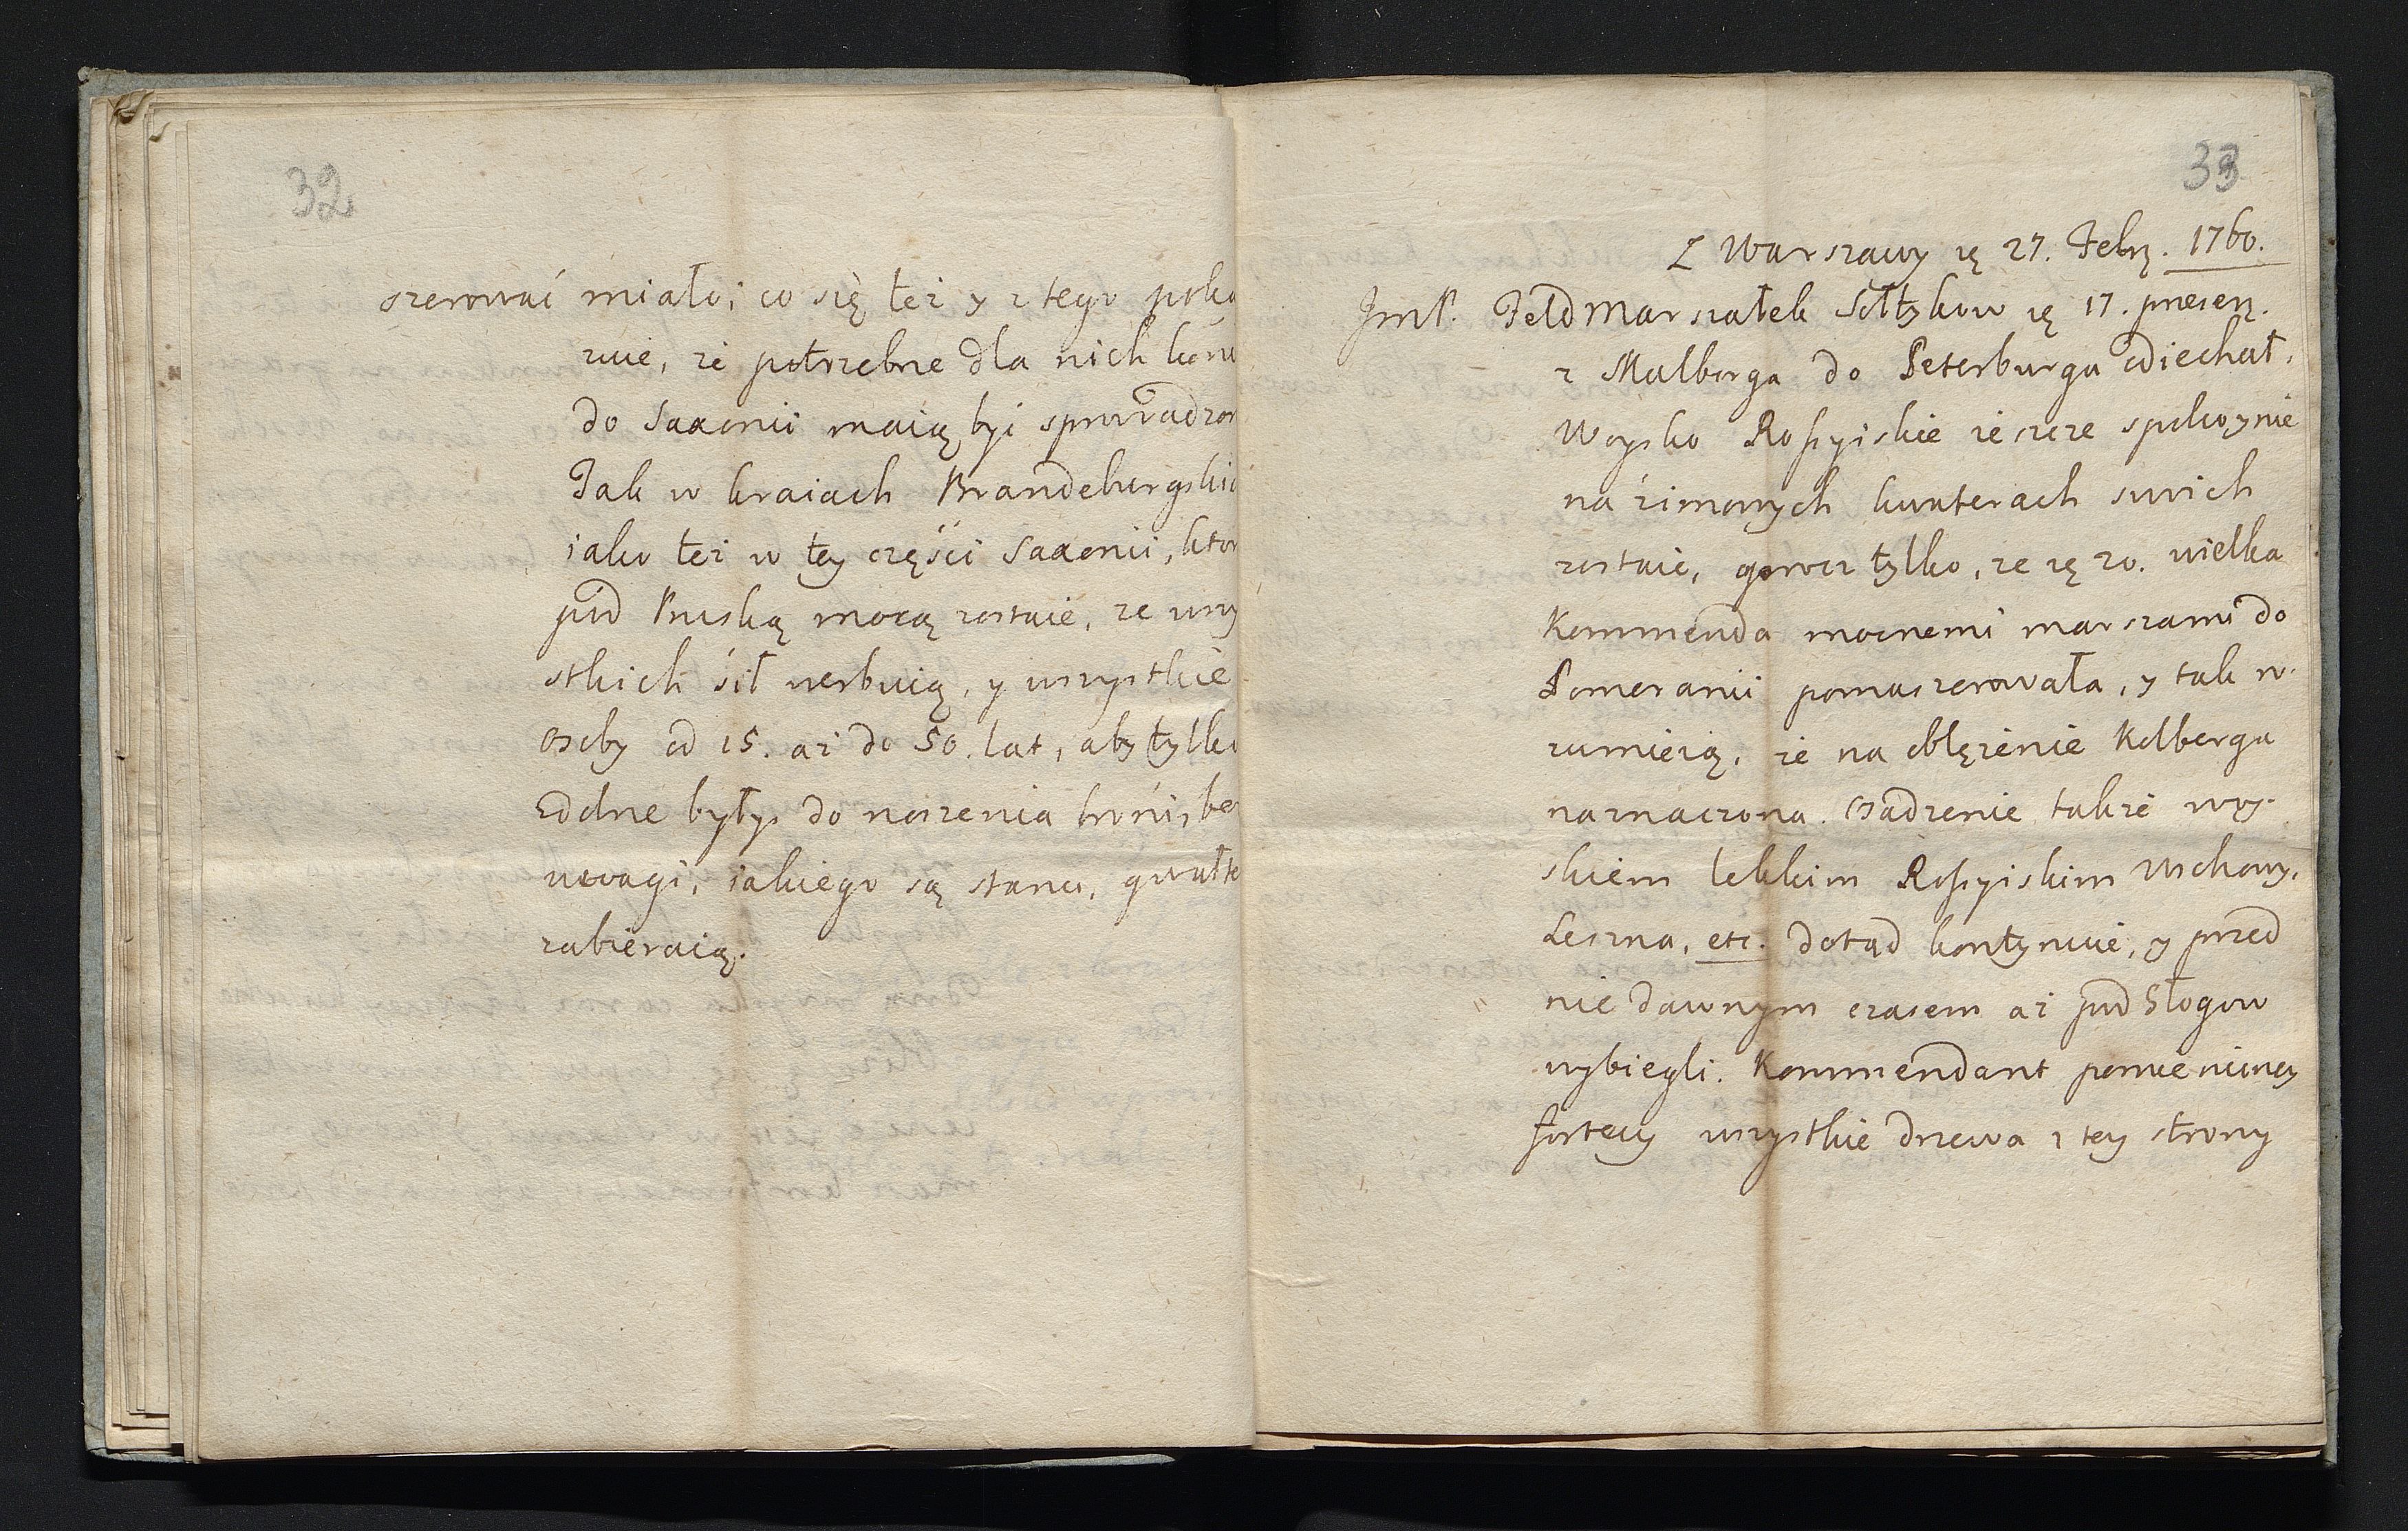 32
szerować miało; co się też y z tego poka
zuie, że potrzebne dla nich kon
do Saxonii maią być sprowadzon
Tak w kraiach Brandeburgskic
iako też w tey części Saxonii, ktor
pod Pruską mocą zostaie, ze wszy
stkich śił werbuią, y wszystkie
osoby od 15. aż do 50. lat, aby tylko
zdolne były do noszenia broni, bez
uwagi, iakiego są stanu, gwałte
zabieraią.
33
Z Warszawy 27. Febr. 1760.
JmP. FeldMarszałek Sołtykow 17. presen.
z Malborga do Peterburga odiechał.
Woysko Rossyiskie ieszcze spokoynie
na zimowych kwaterach swich
zostaie, tylko, ze 20. wielka
Kommenda mocnemi marszami do
Pomeranii pomaszerowała, y tak ro-
zumieią, że na oblężenie Kolberga
naznaczona. Osadzenie także woy-
skiem lekkim Rossyiskim Wschowy,
Leszna, etc. dotąd kontynuie, y przed
nie dawnym czasem aż pod Głogow
wybiegli. Kommendant pomienioney
fortecy wszystkie drzewa z tey strony